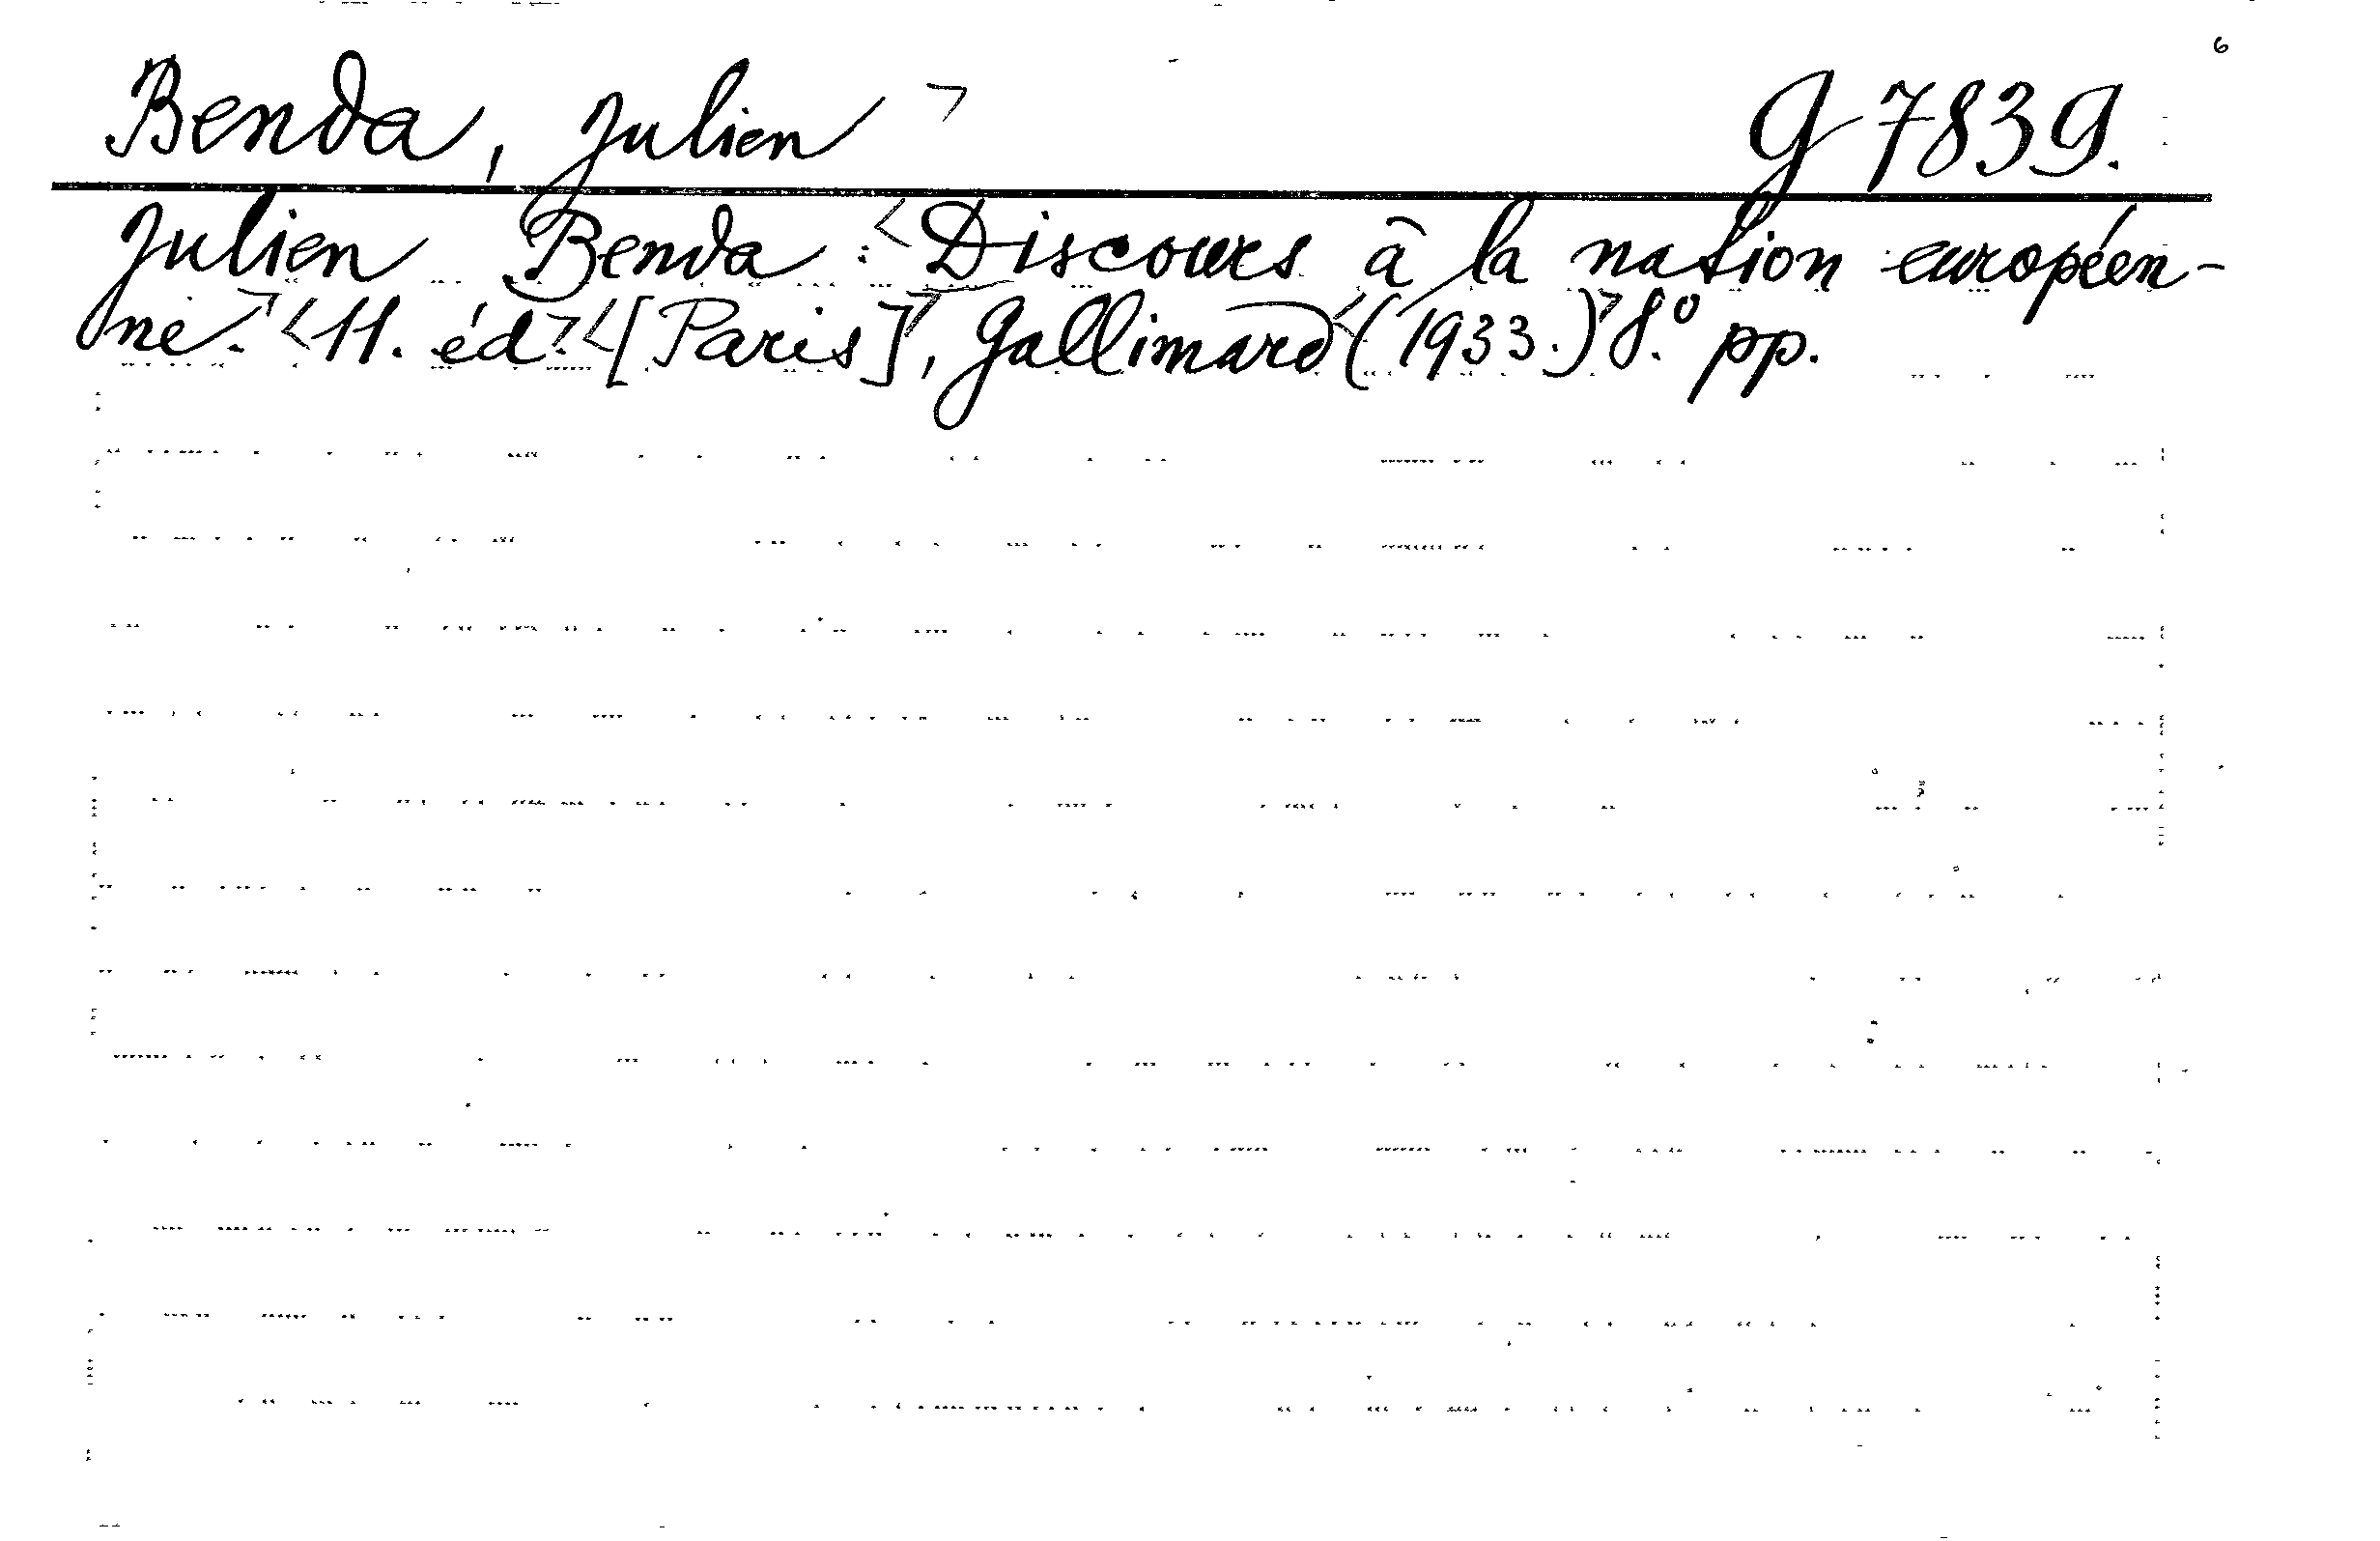 6
Benda, Julien > G 7839.
Julien Benda: <Discours à la nation européen-
ne.> <11. éd.> <[Paris]>, Gallimard <(1933.)> 8.º pp.